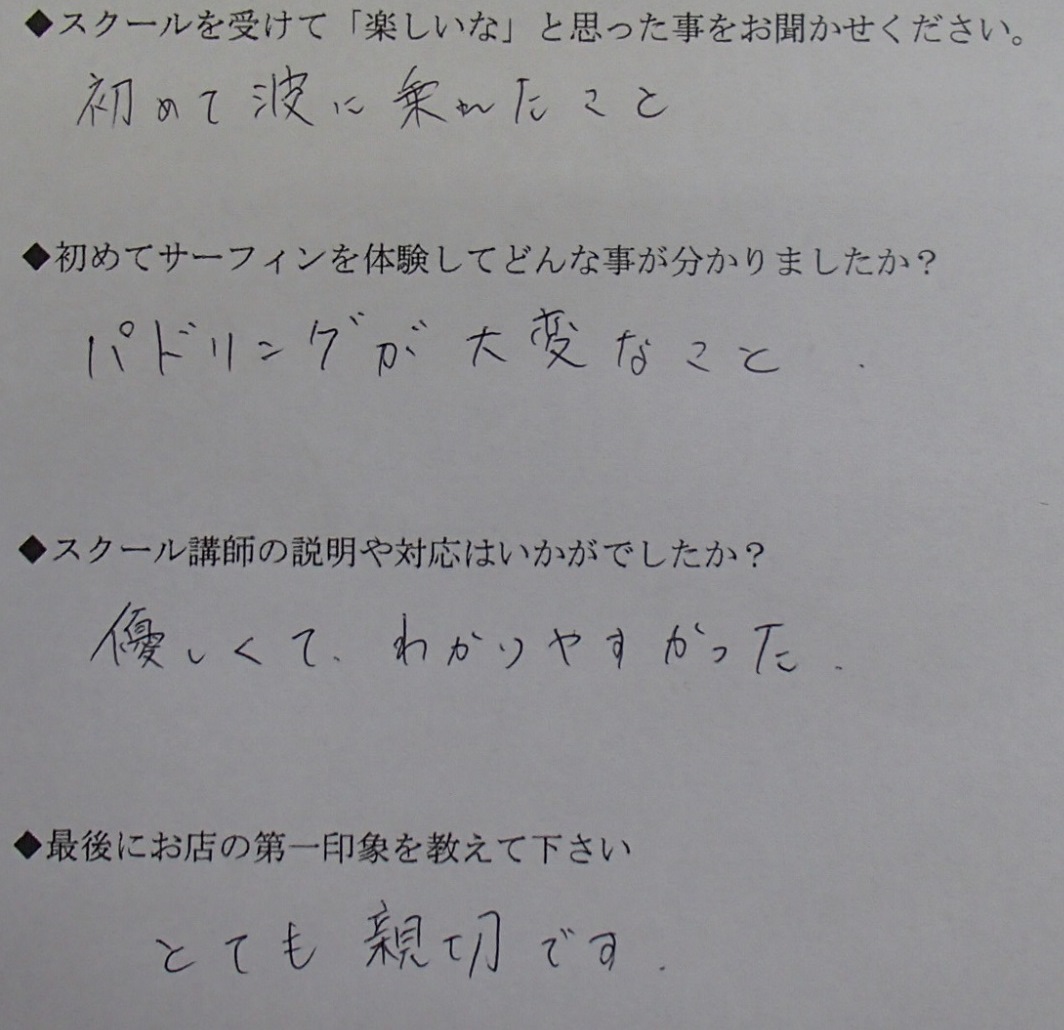 ◆スクールを受けて「楽しいな」と思った事をお聞かせください。
初めて波に乗れたこと
◆初めてサーフィンを体験してどんな事が分かりましたか？
パドリングが大変なこと.
◆スクール講師の説明や対応はいかがでしたか？
優しくて、わかりやすかった.
◆最後にお店の第一印象を教えて下さい
とても親切です.